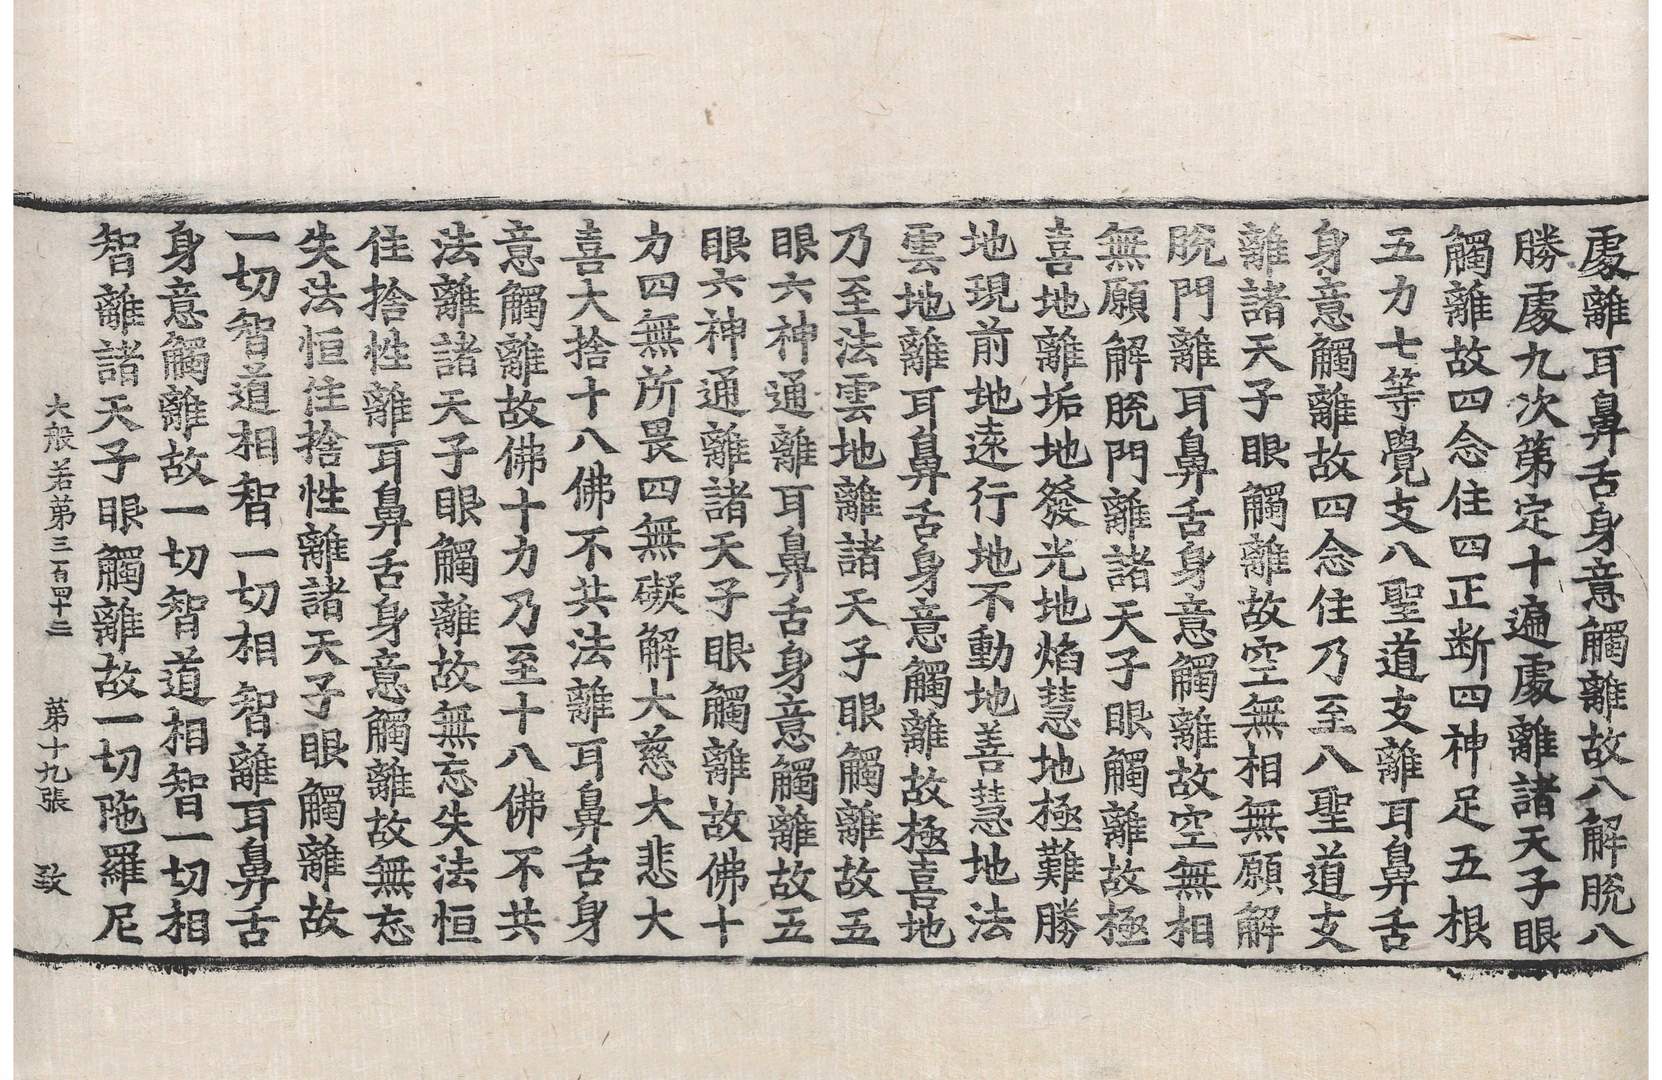 處離耳鼻舌身意觸離故八解脫八
勝處九次第定十遍處離諸天子眼
觸離故四念住四正断四神足五根
五力七等覺支八聖道支離耳鼻舌
身意觸離故四念住乃至八聖道支
離諸天子眼觸離故空無相無願解
脫門離耳鼻舌身意觸離故空無相
無願解脫門離諸天子眼觸離故極
喜地離垢地發光地焰慧地極難勝
地現前地遠行地不動地善慧地法
雲地離耳鼻舌身意觸離故極喜地
乃至法雲地離諸天子眼觸離故五
眼六神通離耳鼻舌身意觸離故五
眼六神通離諸天子眼觸離故佛十
力四無所畏四無礙解大慈大悲大
喜大捨十八佛不共法離耳鼻舌身
意觸離故佛十力乃至十八佛不共
法離諸天子眼觸離故無忘失法恒
住捨性離耳鼻舌身意觸離故無忘
失法恒住捨性離諸天子眼觸離故
一切智道相智一切相智離耳鼻舌
身意觸離故一切智道相智一切相
智離諸天子眼觸離故一切陁羅尼
大般若第三百四十二 第十九張 致